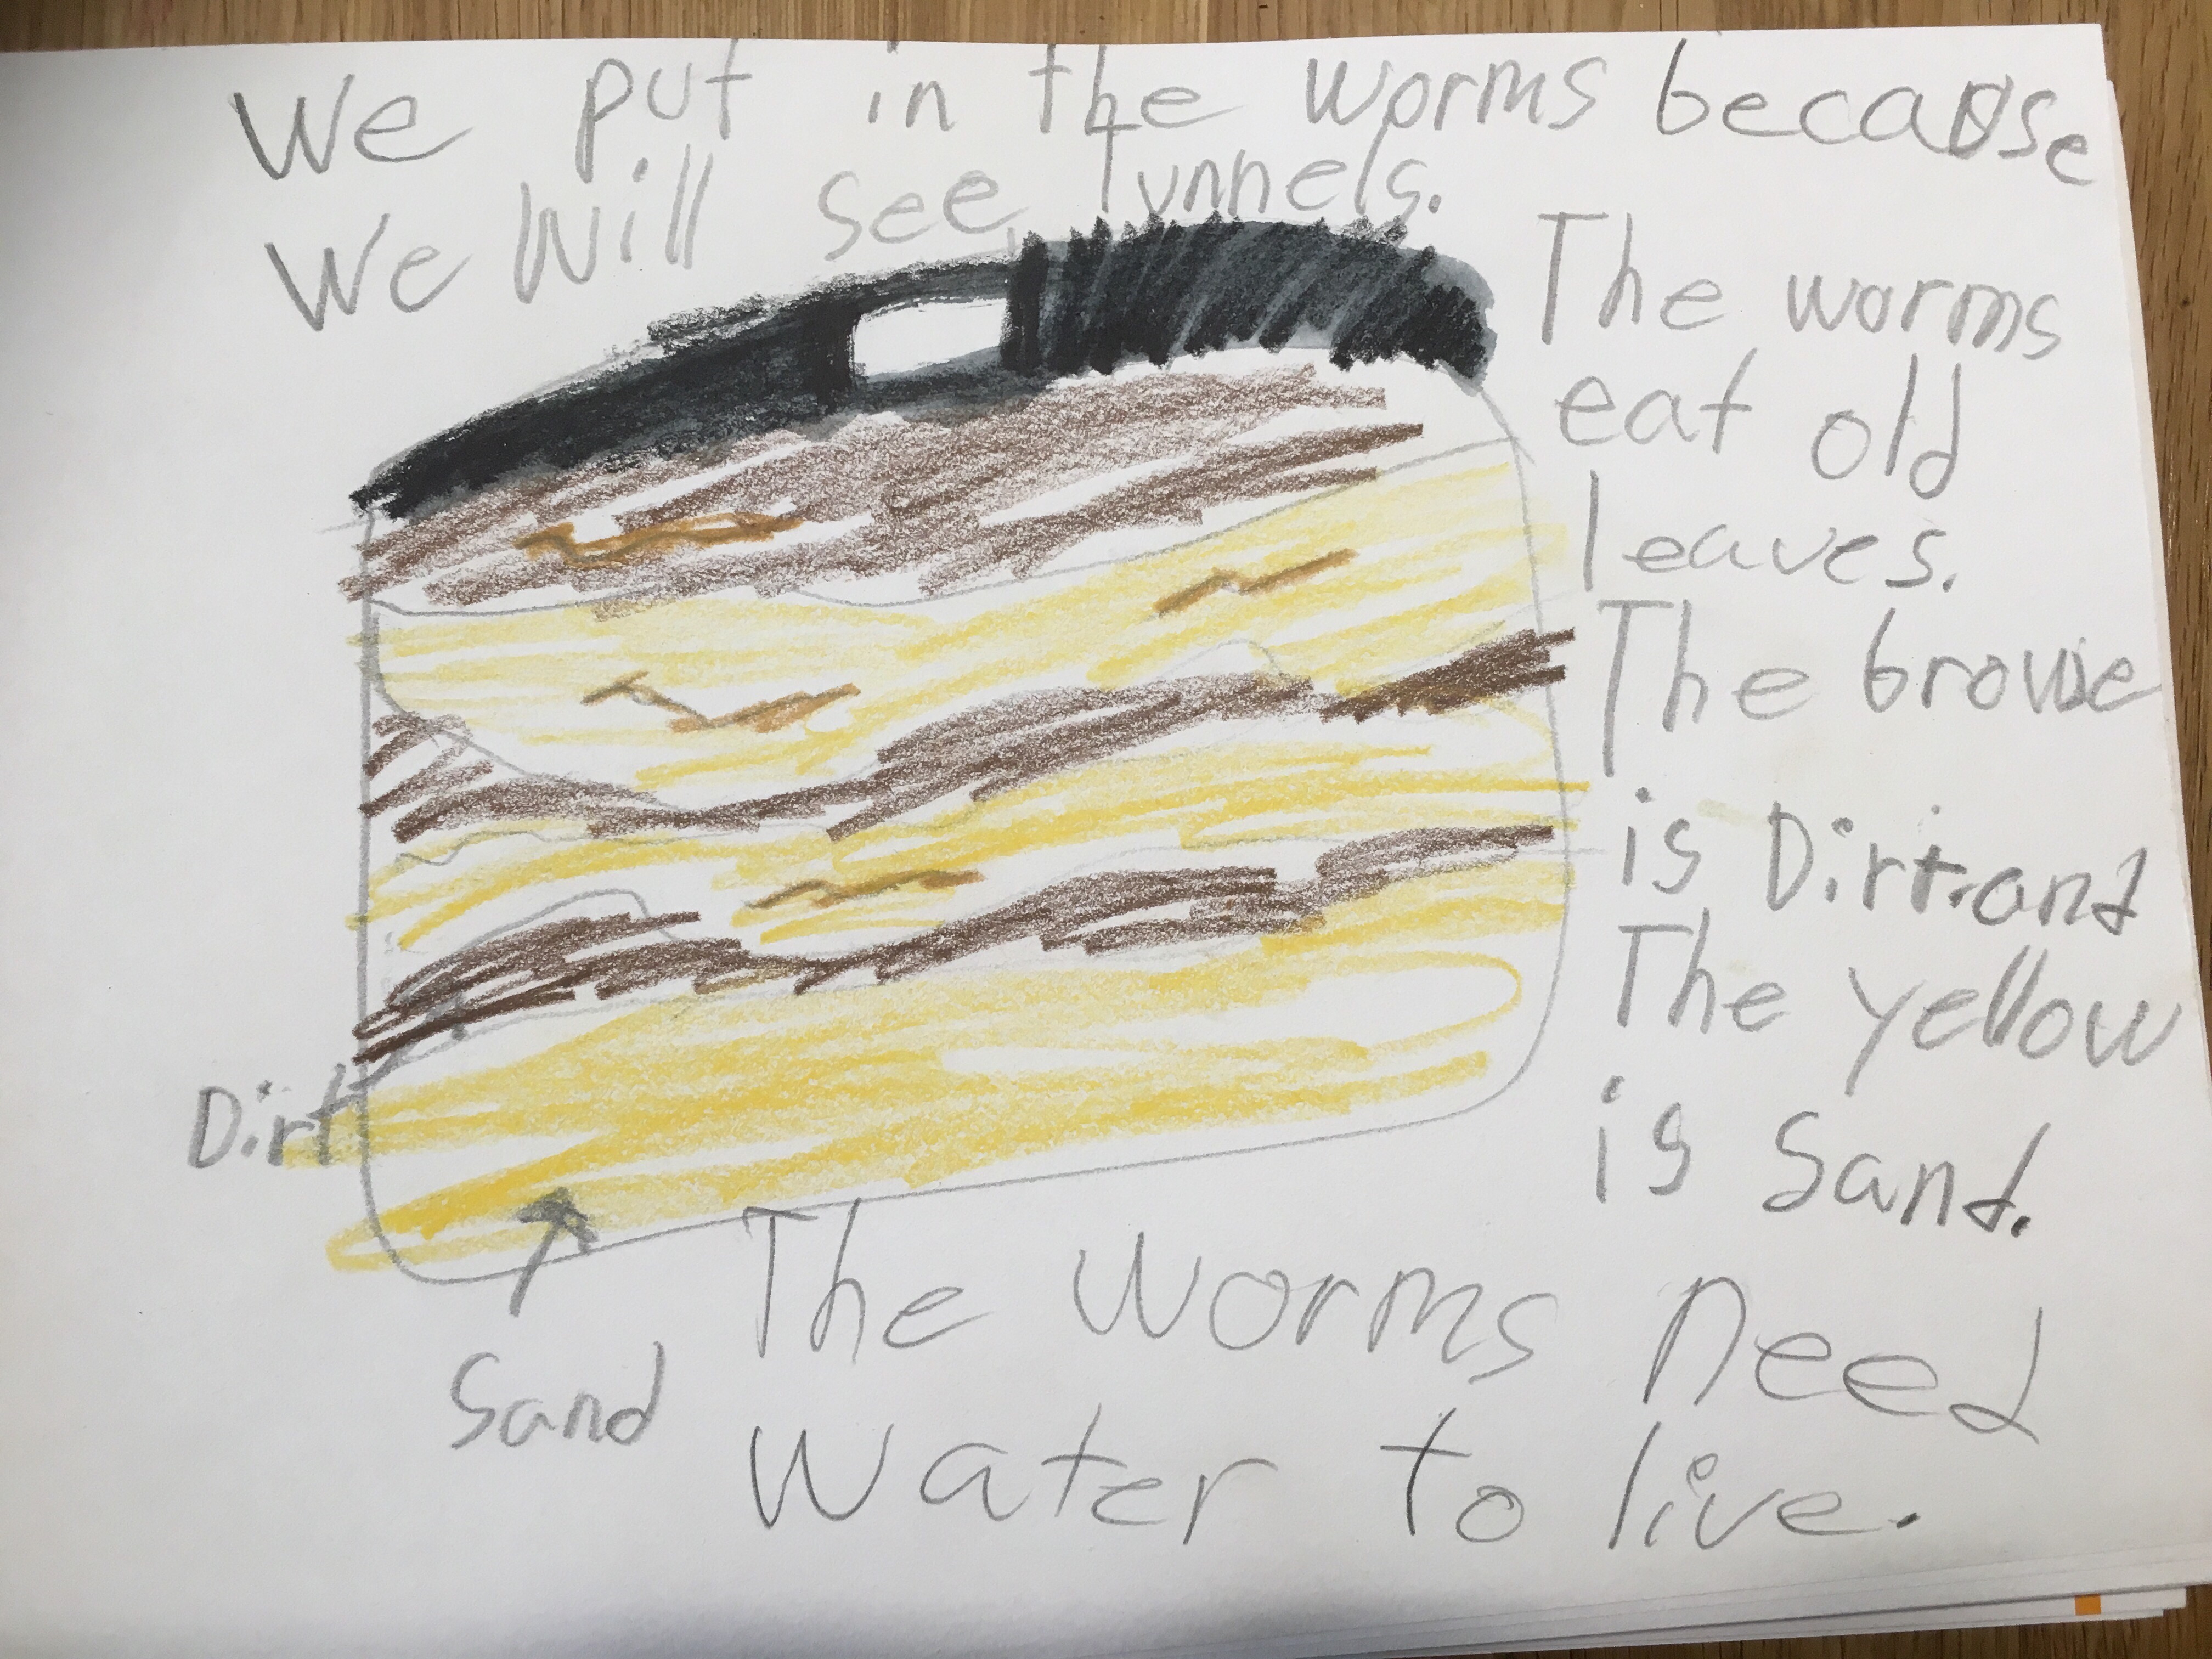 We put in the worms because
We Will see Tunnels.
The worms
eat old
leaves.
The browe
is Dirt.and
The yellow
is Sand.
Dirt
Sand
The worms need
Water to live.